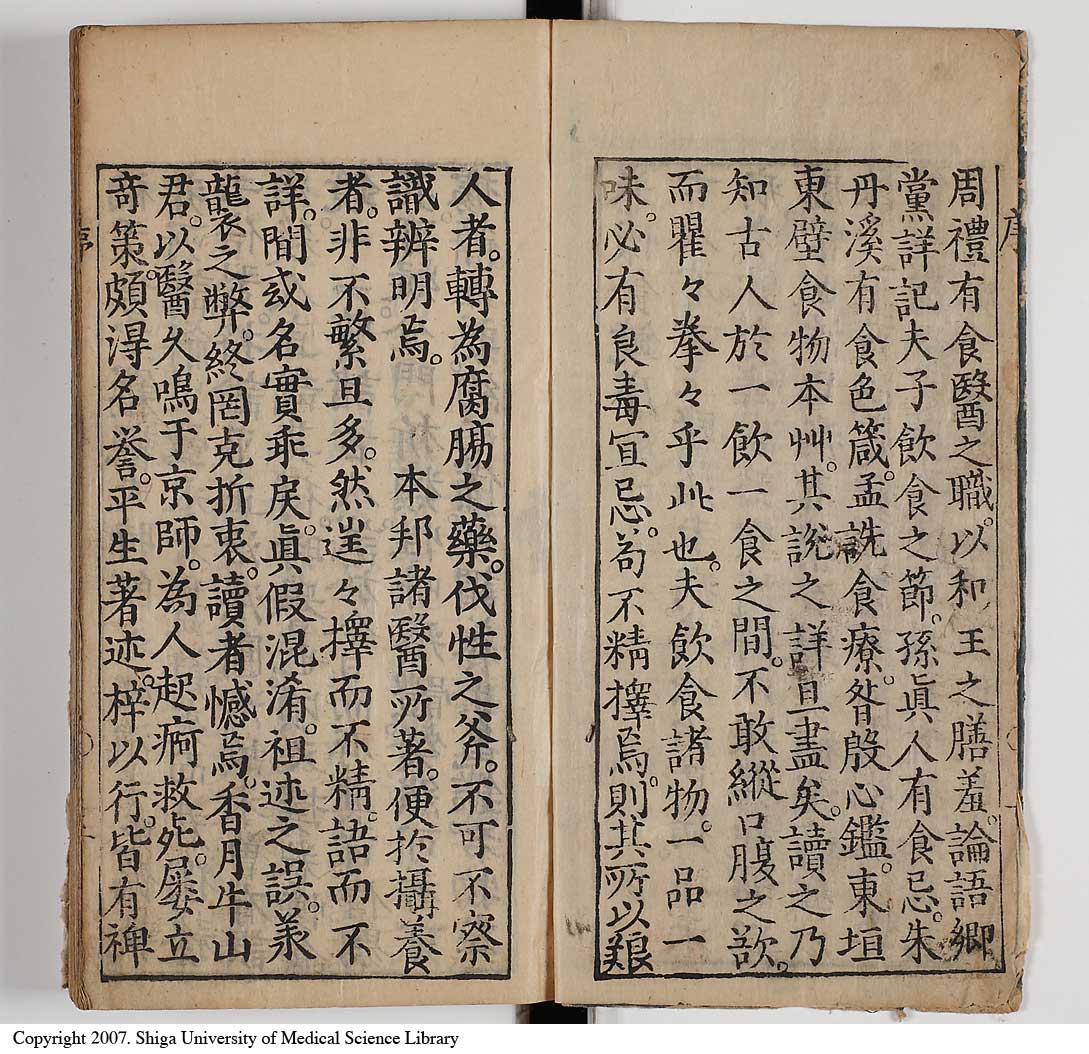 序
周禮有食醫之職。以和王之膳羞。論語鄉
黨詳記夫子飲食之節。孫眞人有食忌。朱
丹溪有食色箴。孟詵食療。昝殷心鑑。東垣
東壁食物本艸。其說之詳且盡矣。讀之乃
知古人於一飲一食之間。不敢縱口腹之欲。
而瞿々拳々乎此也。夫飲食諸物。一品一
味。必有良毒宜忌。苟不精擇焉。則其所以飬
人者。轉為腐腸之藥。伐性之斧。不可不察
識辨明焉。 本邦諸醫所著。便於攝養
者。非不繁且多。然逞々擇而不精。語而不
詳。間或名實乖戾。眞假混淆。祖述之誤。承
襲之弊。終罔克折衷。讀者憾焉。香月牛山
君。以醫久鳴于京師。為人起痾救死。屢立
奇策。頗得名誉。平生著述。梓以行。皆有裨
序
Copyright 2007. Shiga University of Medical Science Library